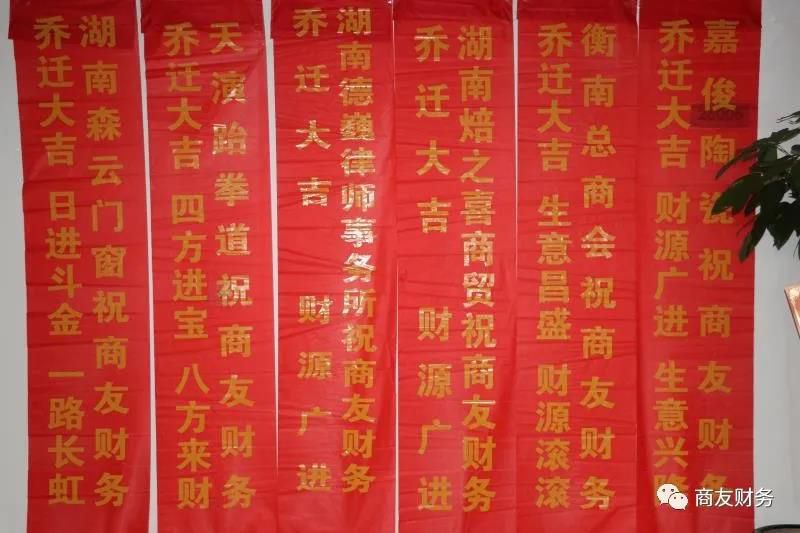 嘉俊陶瓷祝商友财务
乔迁大吉 财源广进 生意兴
衡南总商会祝商友财务
乔迁大吉 生意昌盛 财源滚滚
湖南焙之喜商贸祝商友财务
乔迁大吉 财源广进
湖南德巍律师事务所祝商友财务
乔迁大吉 财源广进
天演跆拳道祝商友财务
乔迁大吉 四方进宝 八方来财
湖南森云门窗祝商友财务
乔迁大吉 日进斗金 一路长虹
商友财务